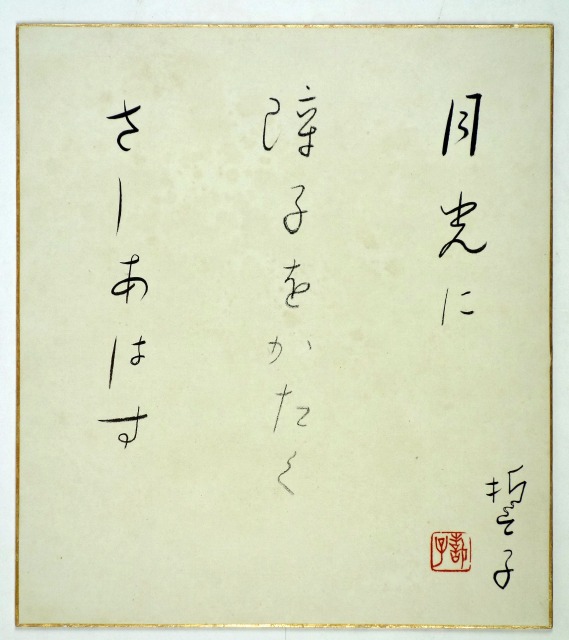 月光に
障子をかたく
さしあはす
誓子